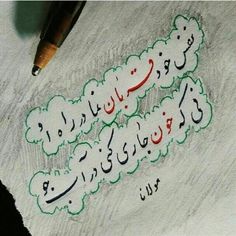 نفس خود قربان نما در راه او
نی که خون جاری کنی در آب جو
مولانا